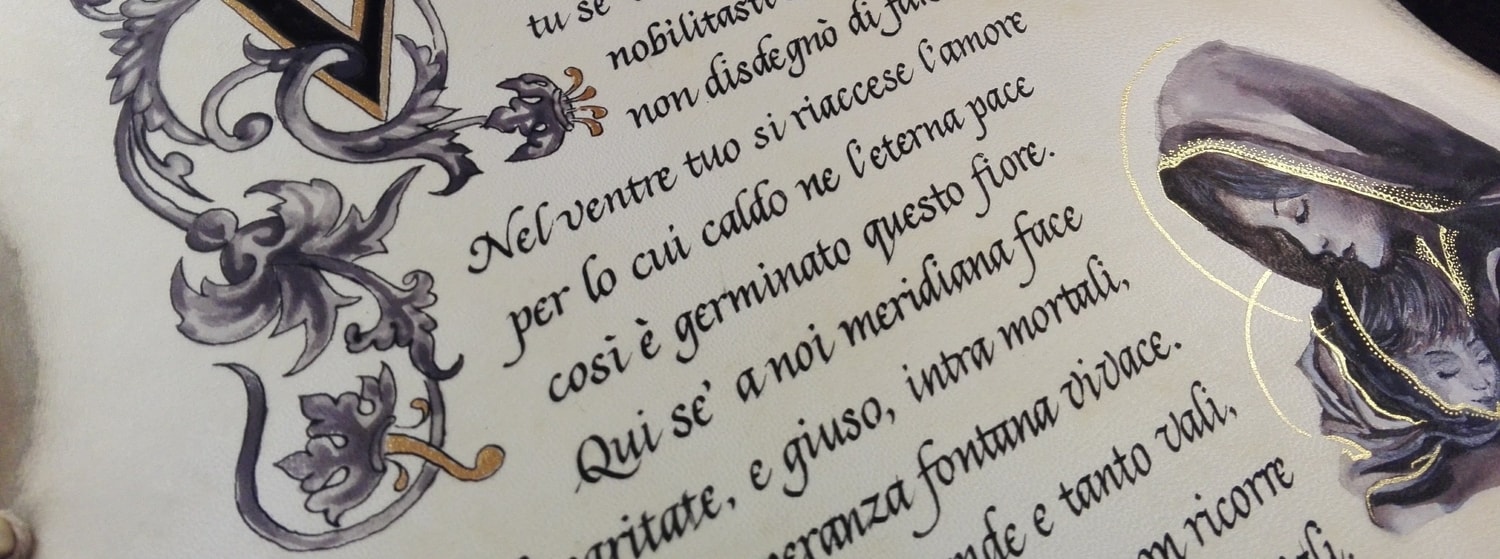 V
tu se'
nobilitasti
non disdegnò di
Nel ventre tuo si riaccese l'amore
per lo cui caldo ne l'eterna pace
così è germinato questo fiore.
Qui se' a noi meridiana face
caritate, e giuso, intra mortali,
speranza fontana vivace.
e tanto vali,
ricorre